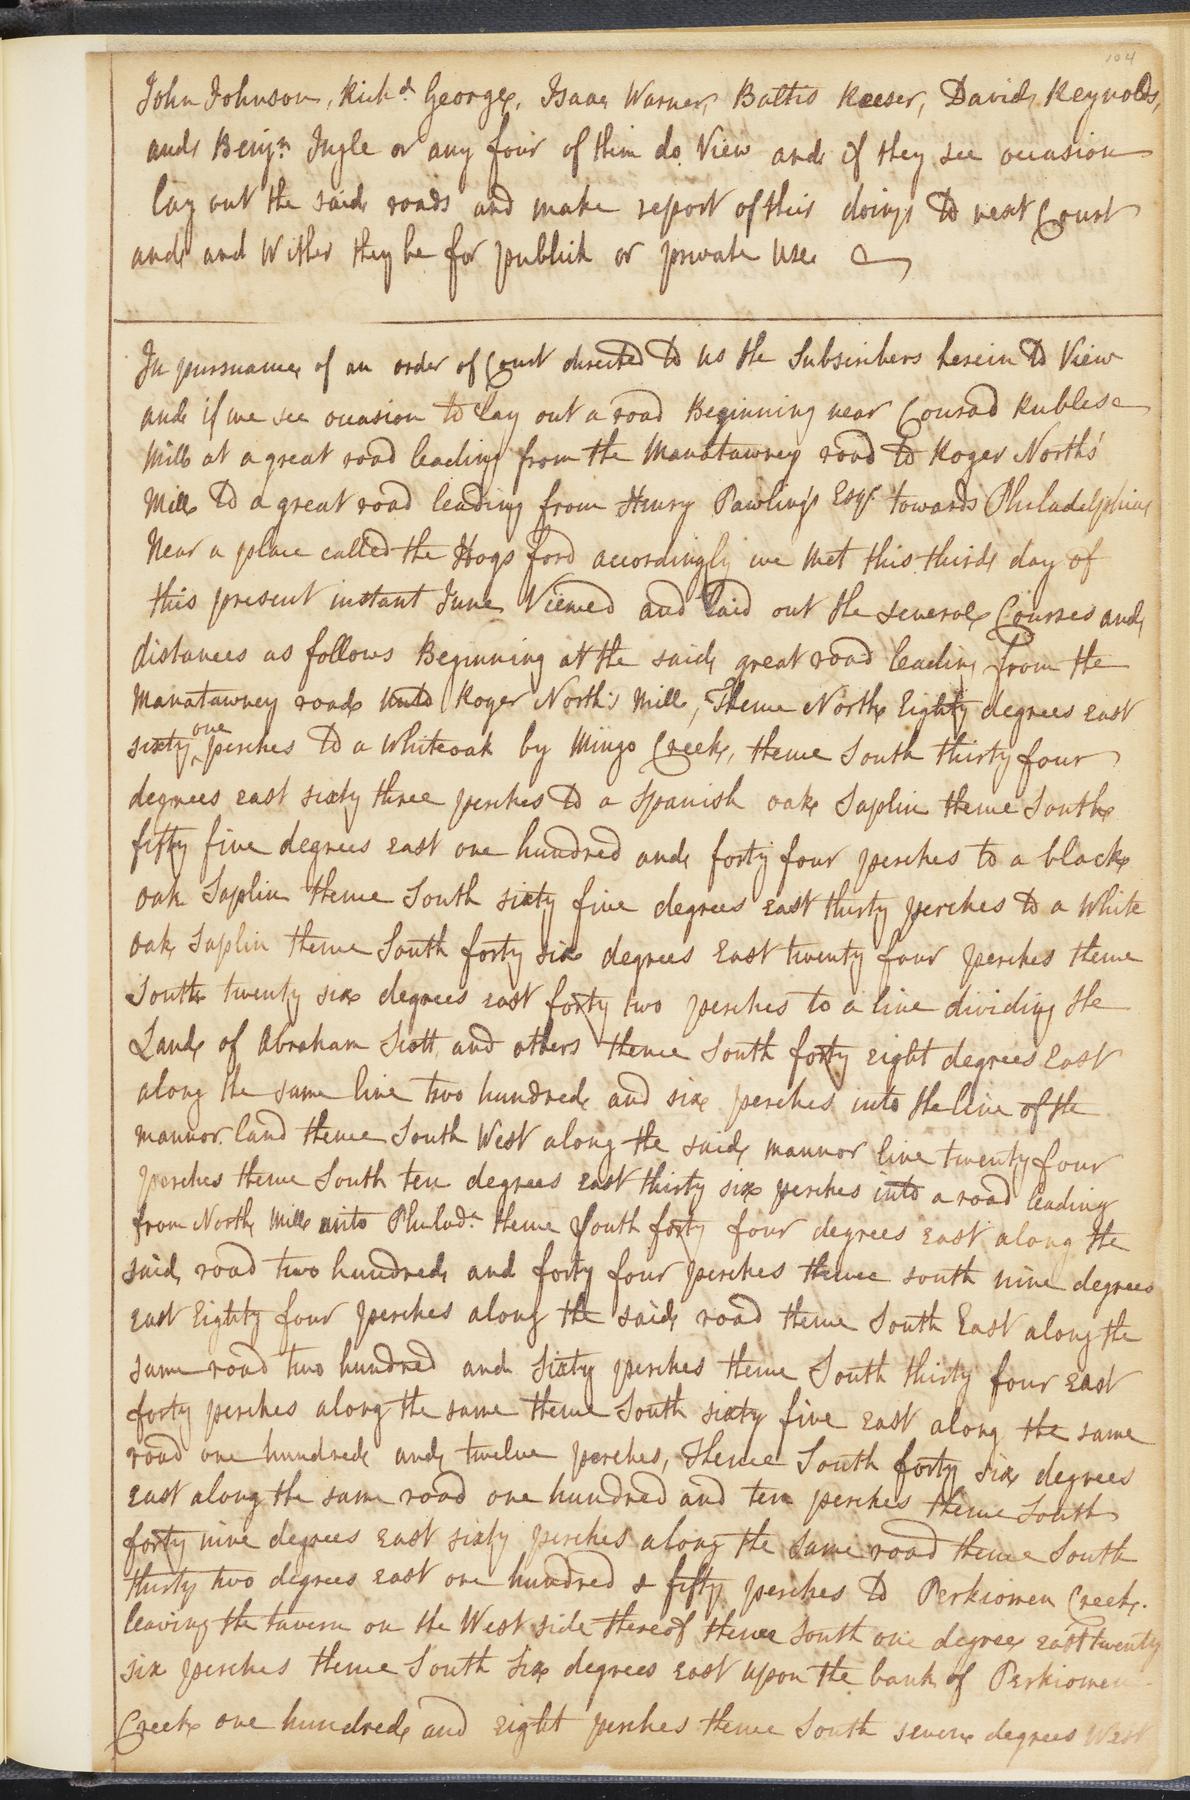 104
John Johnson, Richd. George, Isaac Warner, Baltis Keeser, David Reynolds,
and Benjn. Ingle or any four of them do View and if they see occasion
lay out the said roads and make report of their doings to next Court
and and Wither they be for publick or private Use
In pursuance of an order of Court directed to us the Subscribers herein to View
and if we see occasion to lay out a road Beginning near Conrad Rublese
Mill at a great road leading from the Manatawney road to Roger North's
Mill to a great road leading from Henry Pawlings Esqr. towards Philadelphia
Near a place called the Hogs ford accordingly we Met this third day of
this present instant June Viewed and laid out the several Courses and
distances as follows Beginning at the said great road leading from the
Manatawney road unto Roger North's Mill, Thence North Eighty degrees east
sixty one perches to a Whiteoak by Mingo Creek, thence South thirty four
degrees east sixty three perches to a Spanish oak Saplin thence South
fifty five degrees east one hundred and forty four perches to a black
oak Saplin thence South sixty five degrees east thirty perches to a White
oak Saplin thence South forty six degrees East twenty four perches thence
South twenty six degrees east forty two perches to a line dividing the
Land of Abraham Scott and others thence South forty eight degrees East
along the same line two hundred and six perches into the line of the
mannor land thence South West along the said mannor line twenty four
perches thence South ten degrees east thirty six perches into a road leading
from North Mill unto Philada. thence South forty four degrees east along the
said road two hundred and forty four perches thence south nine degrees
east Eighty four perches along the said road thence South East along the
same road two hundred and Sixty perches thence South thirty four east
forty perches along the same thence South sixty five east along the same
road one hundred and twelve perches, Thence South forty six degrees
East along the same road one hundred and ten perches thence South
forty nine degrees east sixty perches along the same road thence South
thirty two degrees east one hundred & fifty perches to Perkiomen Creek.
leaving the tavern on the West side thereof thence South one degree east twenty
six perches thence South Six degrees east upon the bank of Perkiomen
Creek one hundred and eight perches thence South seven degrees West